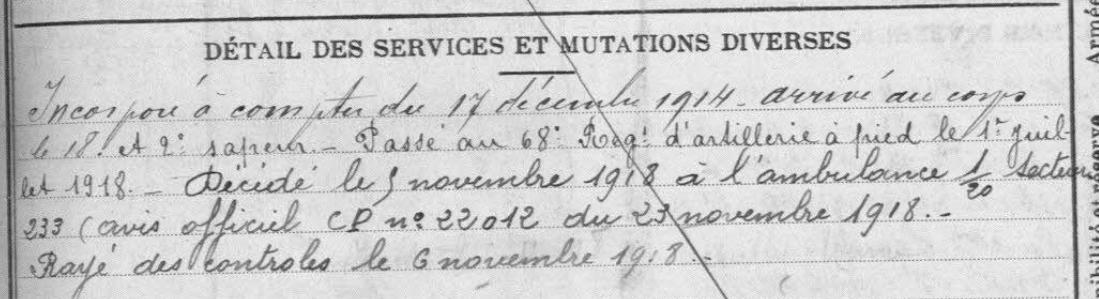 DÉTAIL DES SERVICES ET MUTATIONS DIVERSES
Incorporé à compter du 17 décembre 1914 - arrivé au corps
le 18. et 2e sapeur. - Passé au 68e Rég.t d'artillerie à pied le 1er juil-
let 1918. - Décédé le 5 novembre 1918 à l'ambulance 1/20 Secteur
233 (avis officiel CP n° 22012 du 23 novembre 1918. -
Rayé des controles le 6 novembre 1918. -
Armée